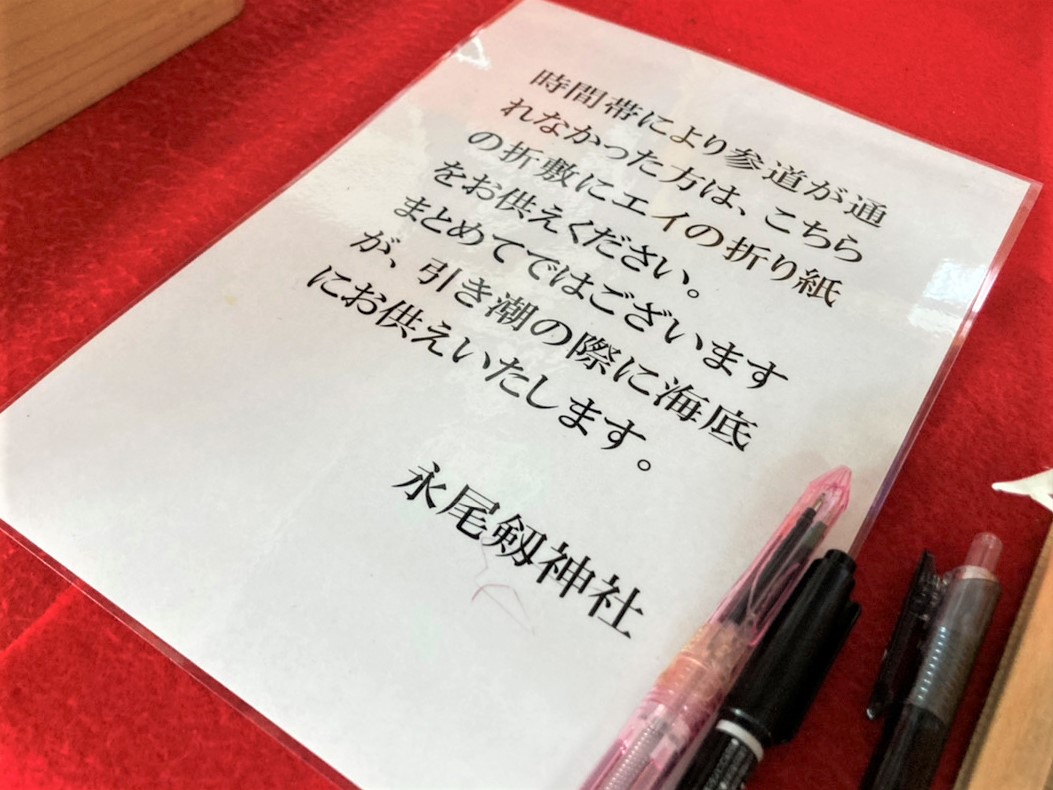 時間帯により参道が通
れなかった方は、こちら
の折敷にエイの折り紙
をお供えください。
まとめてではございます
が、引き潮の際に海底
にお供えいたします。
永尾剱神社